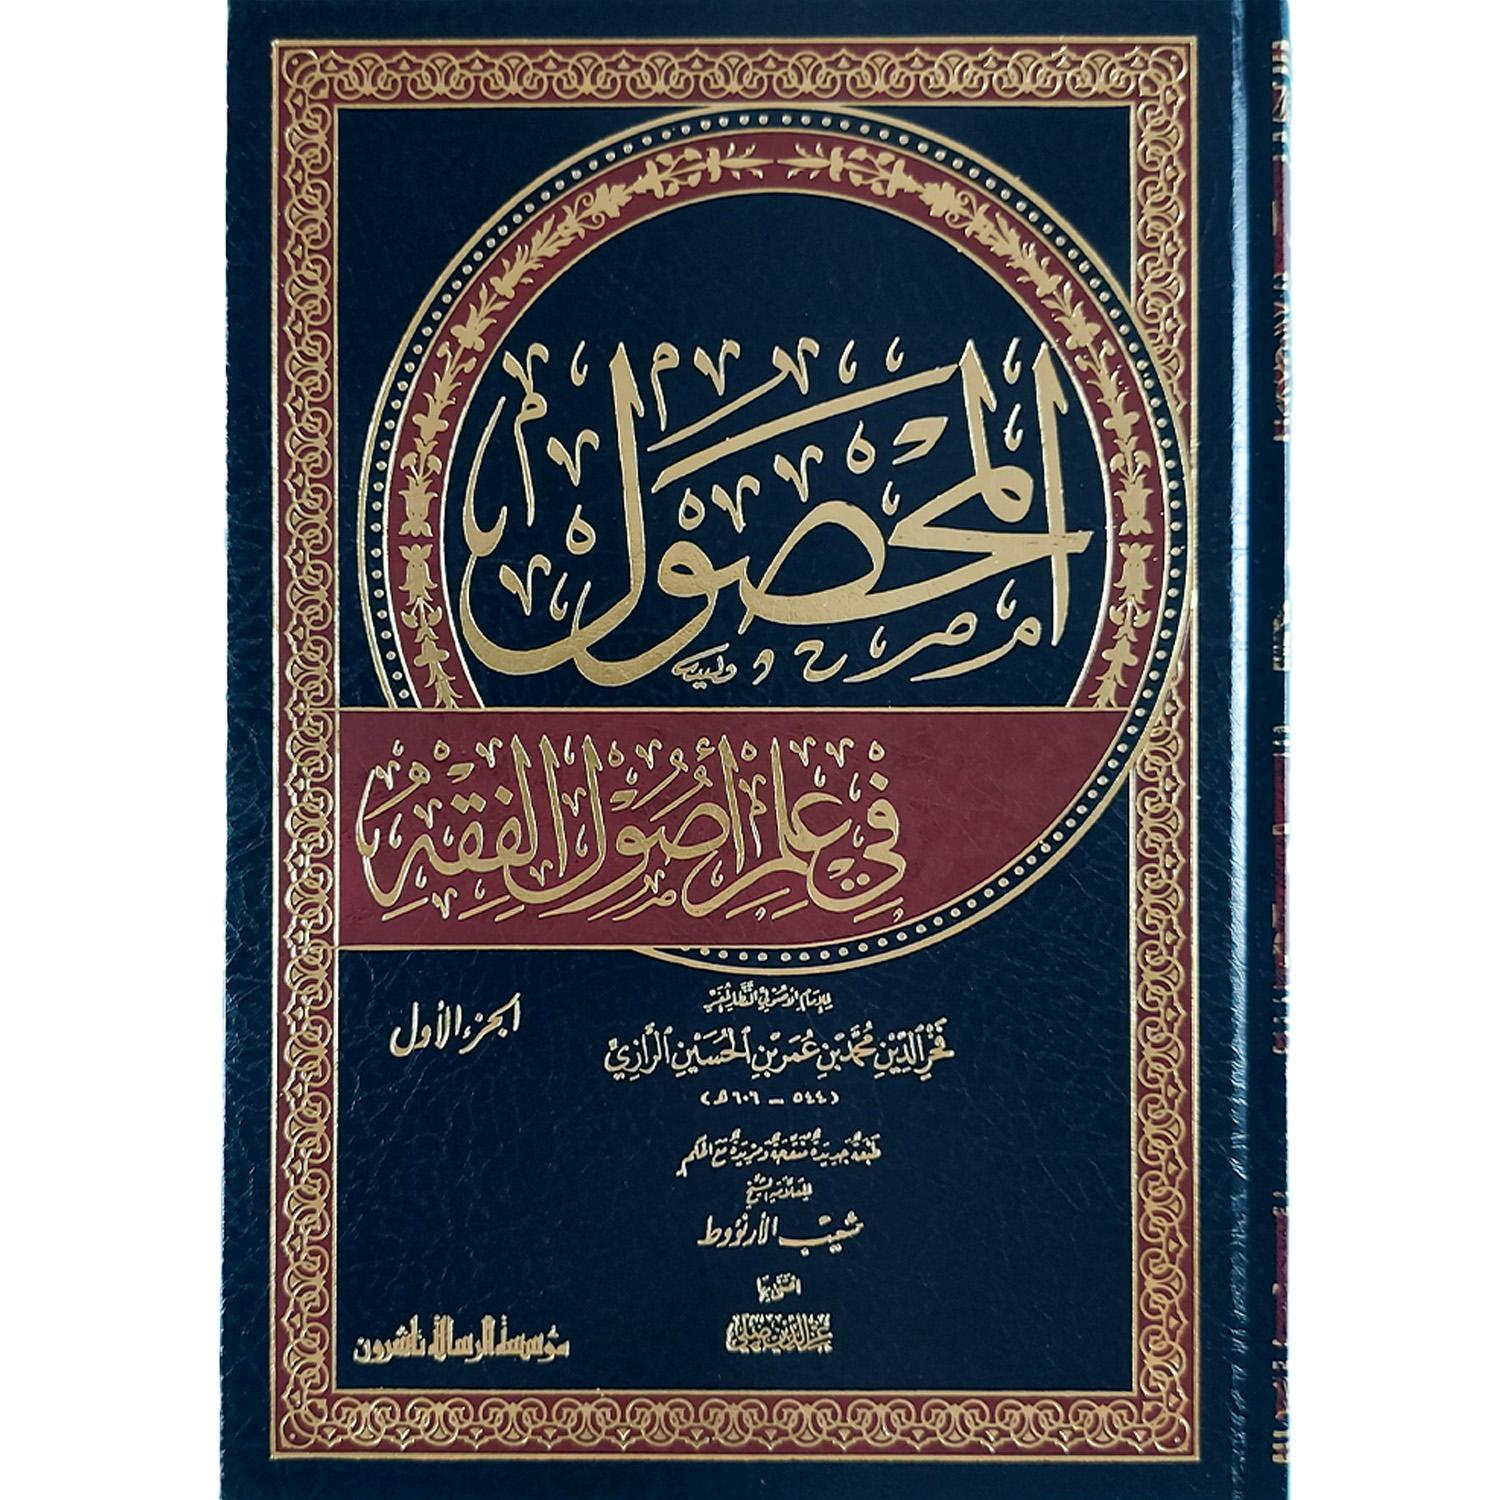 المحصول
في علم أصول الفقه
للإمام الأصولي النظار المفسر
فخر الدين محمد بن عمر بن الحسين الرازي
(٥٤٤ - ٦٠٦ هـ)
الجزء الأول
طبعة جديدة منقحة ومزيدة مع الحكم
للعلامة الشيخ
شعيب الأرنؤوط
اعتنى بها
عز الدين ضلي
مؤسسة الرسالة ناشرون